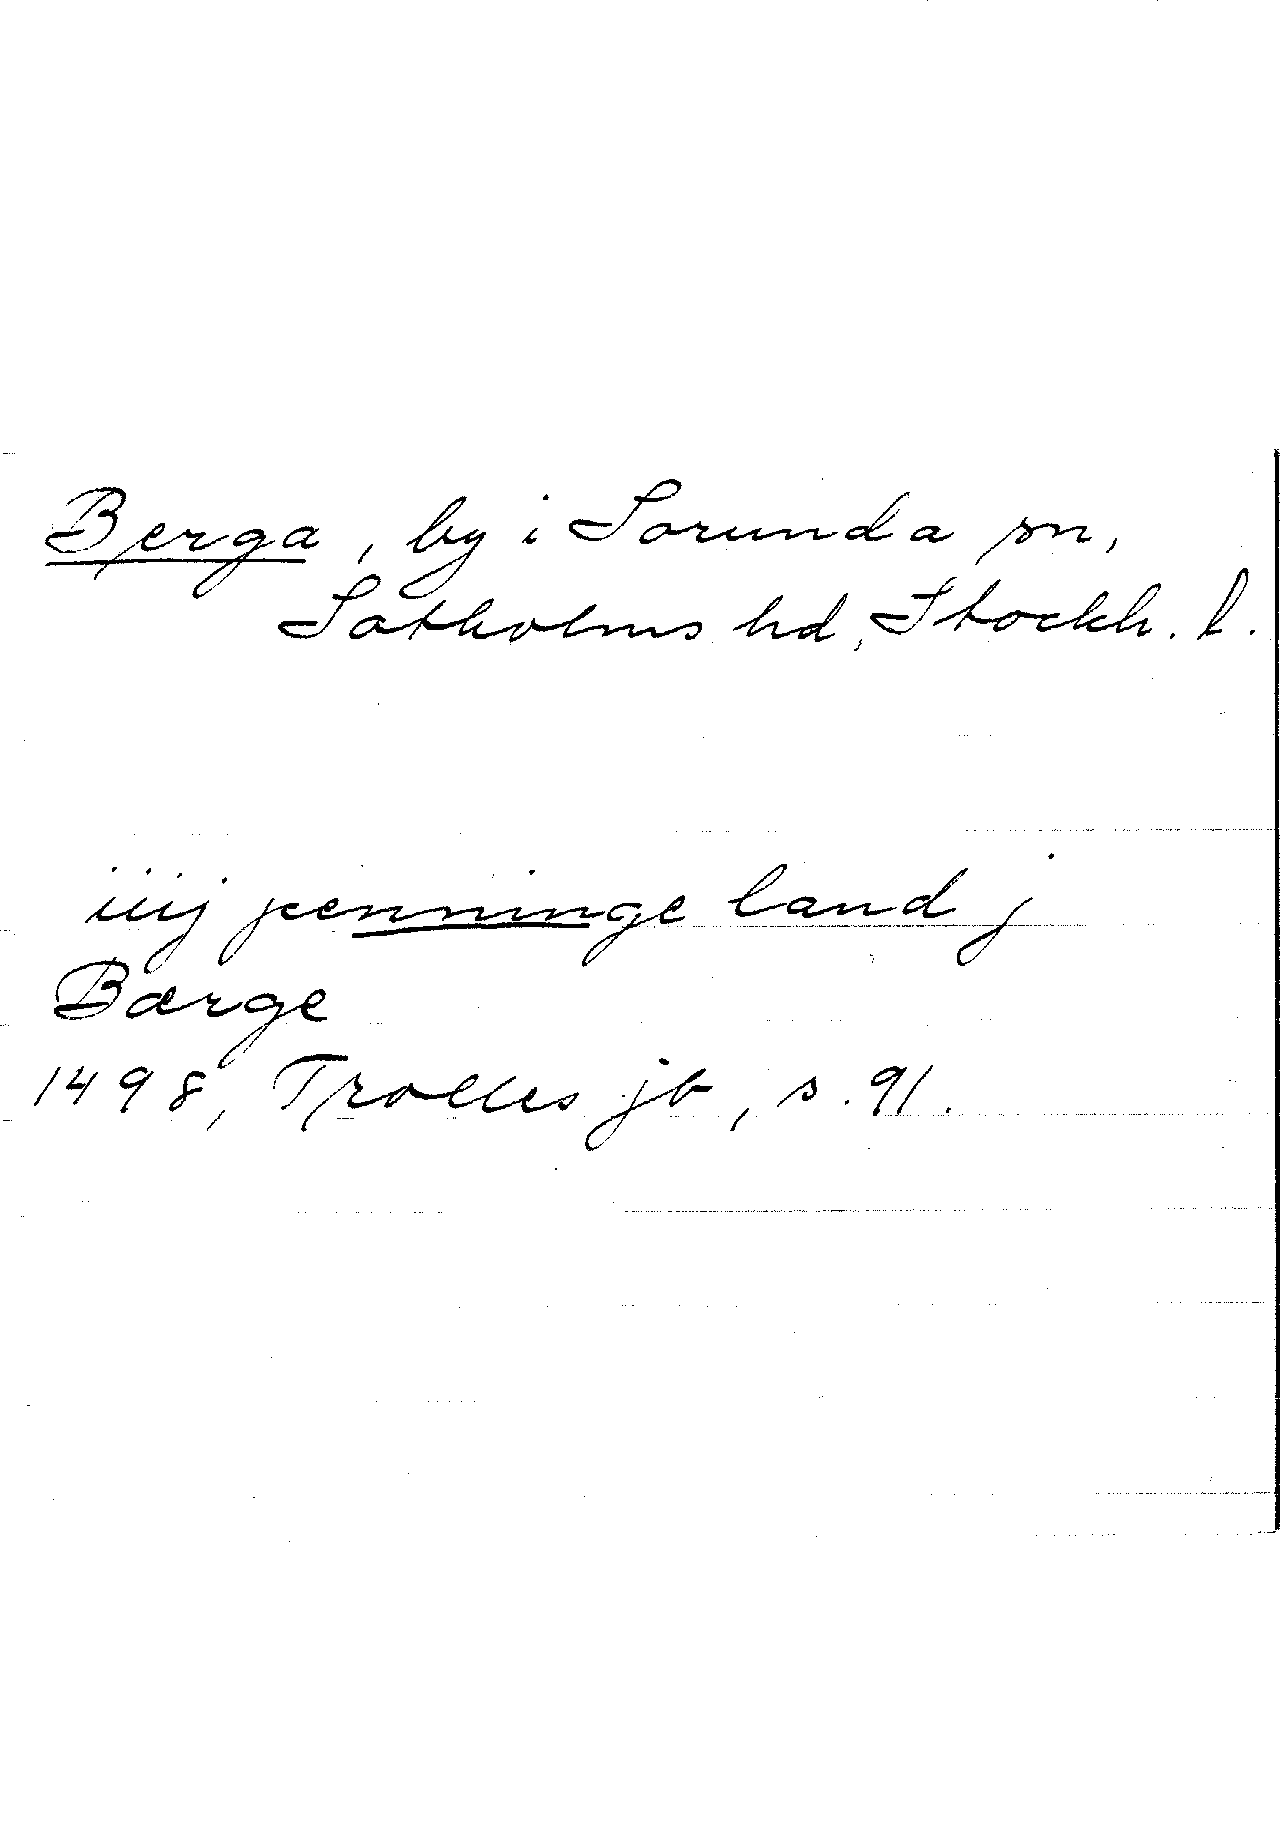 Berga, by i Sorunda sn,
Sotholms hd, Stockh. l.
iiij penninge land j
Bærge
1498, Trolles jb, s. 91.